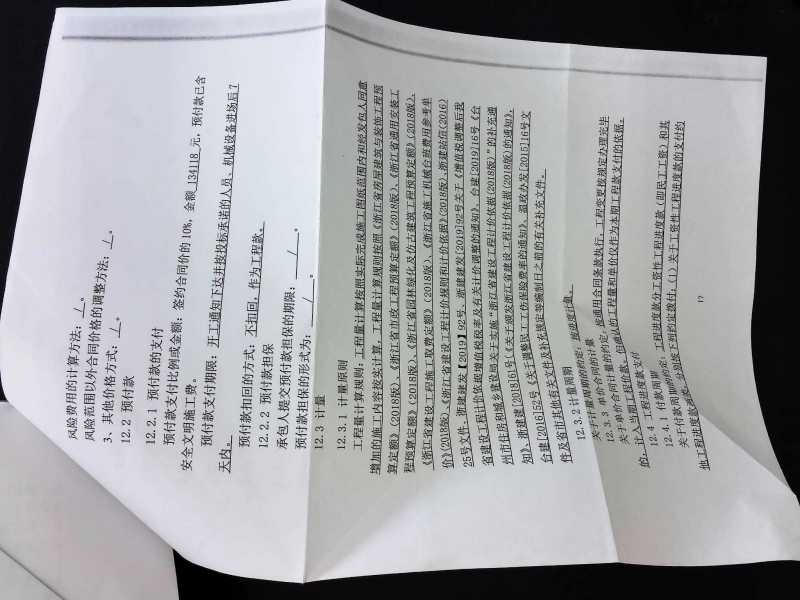 风险费用的计算方法：/。
风险范围以外合同价格的调整方法：/。
3、其他价格方式：/。
12.2 预付款
12.2.1 预付款的支付
预付款支付比例或金额：签约合同价的 10%，金额 134118 元，预付款已含
安全文明施工费。
预付款支付期限：开工通知下达并按投标承诺的人员、机械设备进场后 7
天内。
预付款扣回的方式：不扣回，作为工程款。
12.2.2 预付款担保
承包人提交预付款担保的期限：/。
预付款担保的形式为：/。
12.3 计量
12.3.1 计量原则
工程量计算规则：工程量计算按照实际完成施工图纸范围内和经发包人同意
增加的施工内容按实计算，工程量计算规则按照《浙江省房屋建筑与装饰工程预
算定额》（2018版）、《浙江省市政工程预算定额》（2018版）、《浙江省通用安装工
程预算定额》（2018版）、《浙江省园林绿化及仿古建筑工程预算定额》（2018版）、
《浙江省建设工程施工取费定额》（2018版）、《浙江省施工机械台班费用参考单
价》（2018版）、《浙江省建设工程计价规则和计价依据》（2018版）、浙建站信（2016）
25号文件、浙建建发【2019】92号、浙建建发[2019]92号关于《增值税调整后我
省建设工程计价依据增值税税率及有关计价调整的通知》、台建[2019]16号《台
州市住房和城乡建设局关于实施"浙江省建设工程计价依据(2018版)"的补充通
知》、浙建建[2018]61号(《关于颁发浙江省建设工程计价依据(2018版)的通知》、
台建[2016]52号《关于调整民工工伤保险费率的通知》、温政办发[2015]16号文
件及省市其他有关文件及补充规定等编制日之前的有关补充文件。
12.3.2 计量周期
关于计量周期的约定：按进度计量。
12.3.3 单价合同的计量
关于单价合同计量的约定：按通用合同条款执行，工程变更核规定办理完毕
计入当期工程价款，但确认的工程量和单价仅作为本期工程款支付的依据。
12.4 工程进度款支付
12.4.1 付款周期
关于付款周期的约定：工程进度款分工资性工程进度款（即民工工资）和其
他工程进度款两类，分别按下列约定拨付：(1) 关于工资性工程进度款的支付约